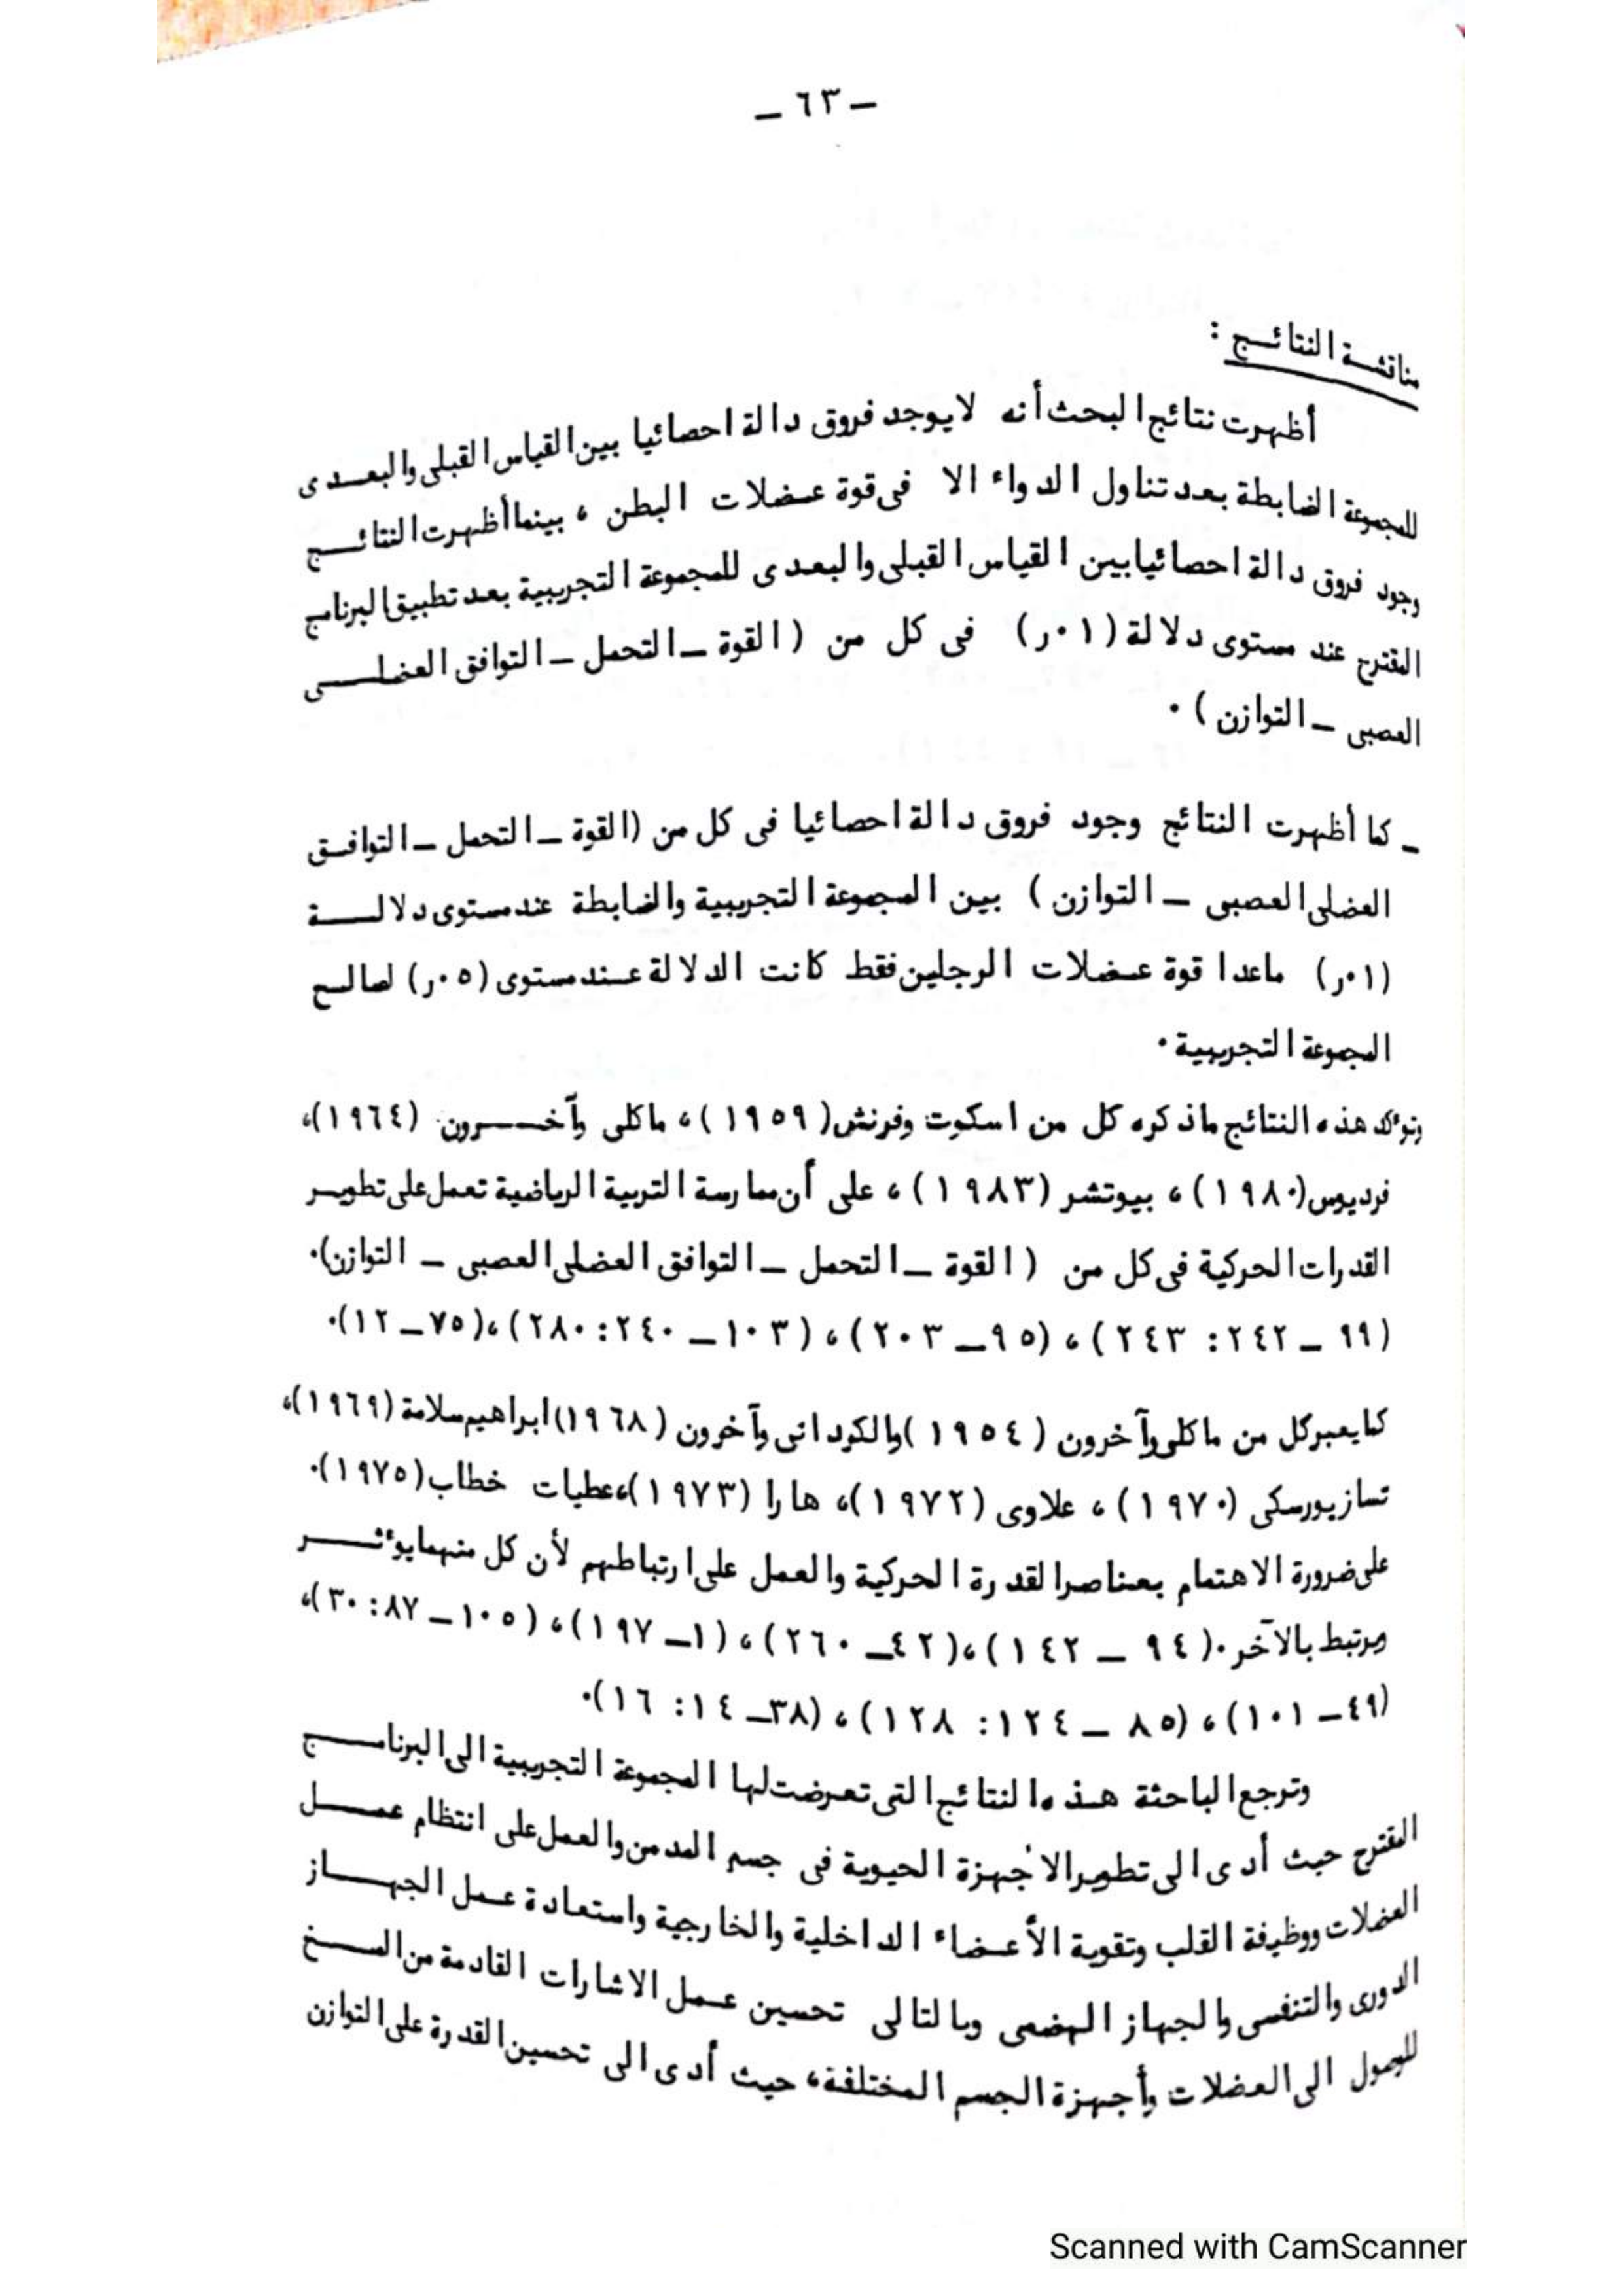 — ٦٣ —
مناقشة النتائج :
أظهرت نتائج البحث أنه لا يوجد فروق دالة احصائيا بين القياس القبلى والبعدى
للمجموعة الضابطة بعد تناول الدواء الا فى قوة عضلات البطن ، بينما أظهرت النتائج
وجود فروق دالة احصائيا بين القياس القبلى والبعدى للمجموعة التجريبية بعد تطبيق البرنامج
المقترح عند مستوى دلالة (٠١ر) فى كل من ( القوة — التحمل — التوافق العضلى
العصبى — التوازن ) ٠
— كما أظهرت النتائج وجود فروق دالة احصائيا فى كل من (القوة — التحمل — التوافق
العضلى العصبى — التوازن ) بين المجموعة التجريبية والضابطة عند مستوى دلالة
(٠١ر) ماعدا قوة عضلات الرجلين فقط كانت الدلالة عند مستوى (٠٥ر) لصالح
المجموعة التجريبية ٠
وتؤكد هذه النتائج ماذكره كل من اسكوت وفرنش( ١٩٥٩ )، ماكلى وآخرون (١٩٦٤)،
فرديوس(١٩٨٠) ، بيوتشر (١٩٨٣) ، على أن ممارسة التربية الرياضية تعمل على تطوير
القدرات الحركية فى كل من ( القوة — التحمل — التوافق العضلى العصبى — التوازن)٠
(٩٩ — ٢٤٢ : ٢٤٣ ) ، (٩٥ — ٢٠٣ ) ، (١٠٣ — ٢٤٠ : ٢٨٠ ) ،(٧٥ — ١٢)٠
كما يعبر كل من ماكلى وآخرون ( ١٩٥٤ )والكردانى وآخرون ( ١٩٦٨) ابراهيم سلامة (١٩٦٩)،
تسازيورسكى (١٩٧٠) ، علاوى (١٩٧٢)، هارا (١٩٧٣)،عطيات خطاب(١٩٧٥)٠
على ضرورة الاهتمام بعناصر القدرة الحركية والعمل على ارتباطهم لأن كل منهما يؤثر
ومرتبط بالآخر ٠( ٩٤ — ١٤٢ )،(٤٢ — ٢٦٠ ) ، (١ — ١٩٧ ) ، (١٠٥ — ٨٧ : ٣٠)،
(٤٩ — ١٠١ ) ، (٨٥ — ١٢٤ : ١٢٨ ) ، (٣٨ — ١٤ : ١٦)٠
وترجع الباحثة هذه النتائج التى تعرضت لها المجموعة التجريبية الى البرنامج
المقترح حيث أدى الى تطوير الأجهزة الحيوية فى جسم المدمن والعمل على انتظام عمل
العضلات ووظيفة القلب وتقوية الأعضاء الداخلية والخارجية واستعادة عمل الجهاز
الدورى والتنفسى والجهاز الهضمى وبالتالى تحسين عمل الاشارات القادمة من المخ
للوصول الى العضلات وأجهزة الجسم المختلفة، حيث أدى الى تحسين القدرة على التوازن
Scanned with CamScanner